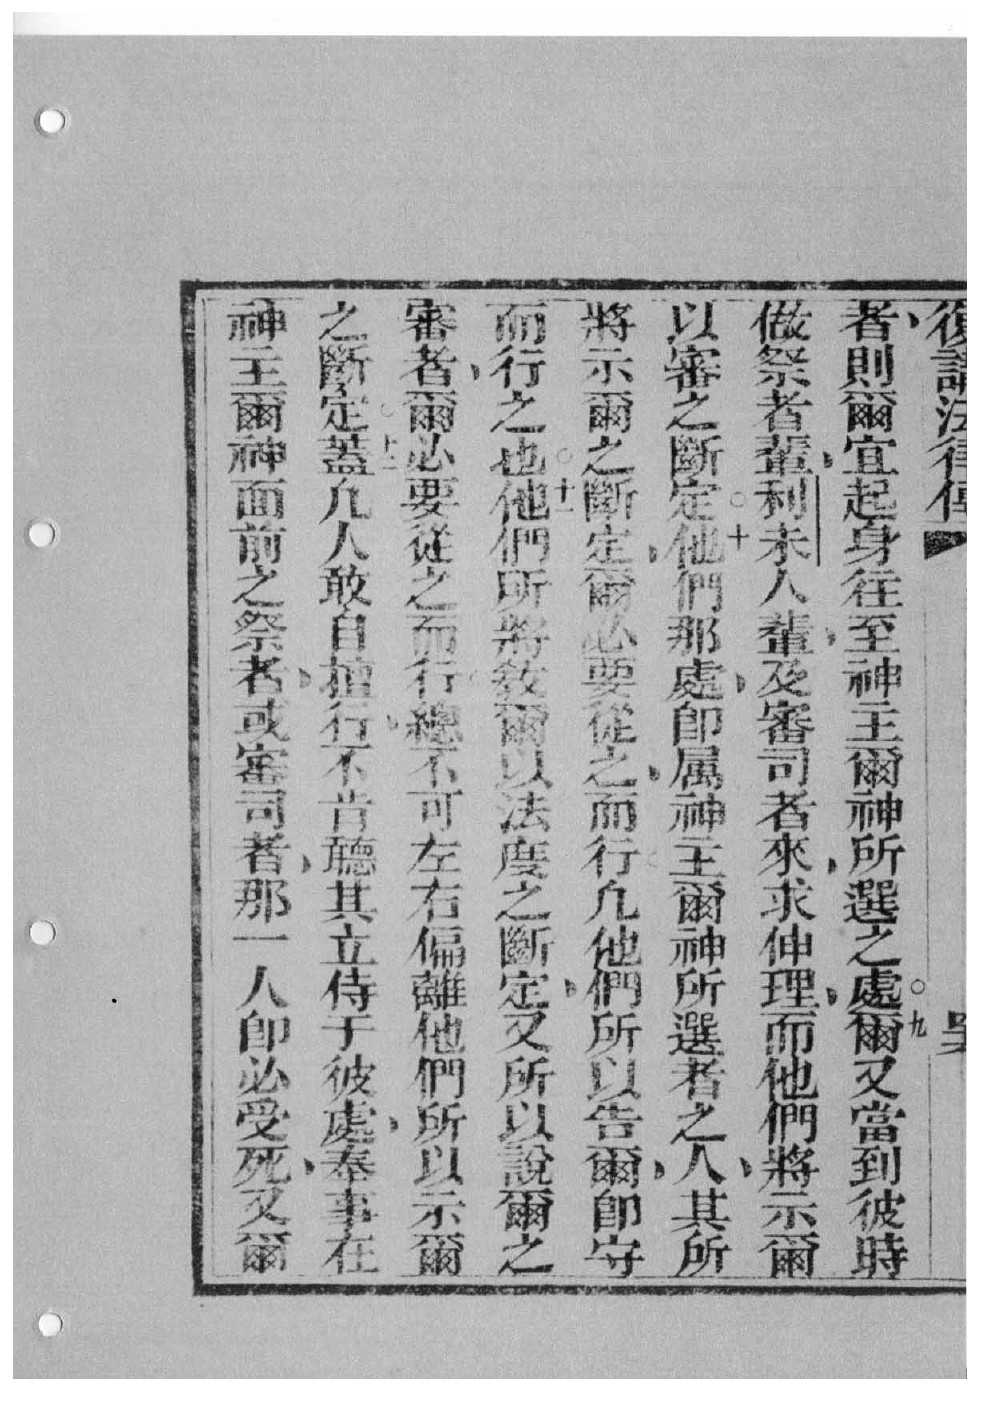 復講法律傳
者則爾宜起身往至神主爾神所選之處○九爾又當到彼時
做祭者輩利未人輩及審司者來求伸理而他們將示爾
以審之斷定○十他們那處即属神主爾神所選者之人其所
將示爾之斷定爾必要從之而行凢他們所以告爾即守
而行之也○十一他們所將教爾以法度之斷定又所以說爾之
審者爾必要從之而行總不可左右偏離他們所以示爾
之斷定○十二蓋凢人敢自擅行不肯聽其立侍于彼處奉事在
神主爾神面前之祭者或審司者那一人即必受死又爾